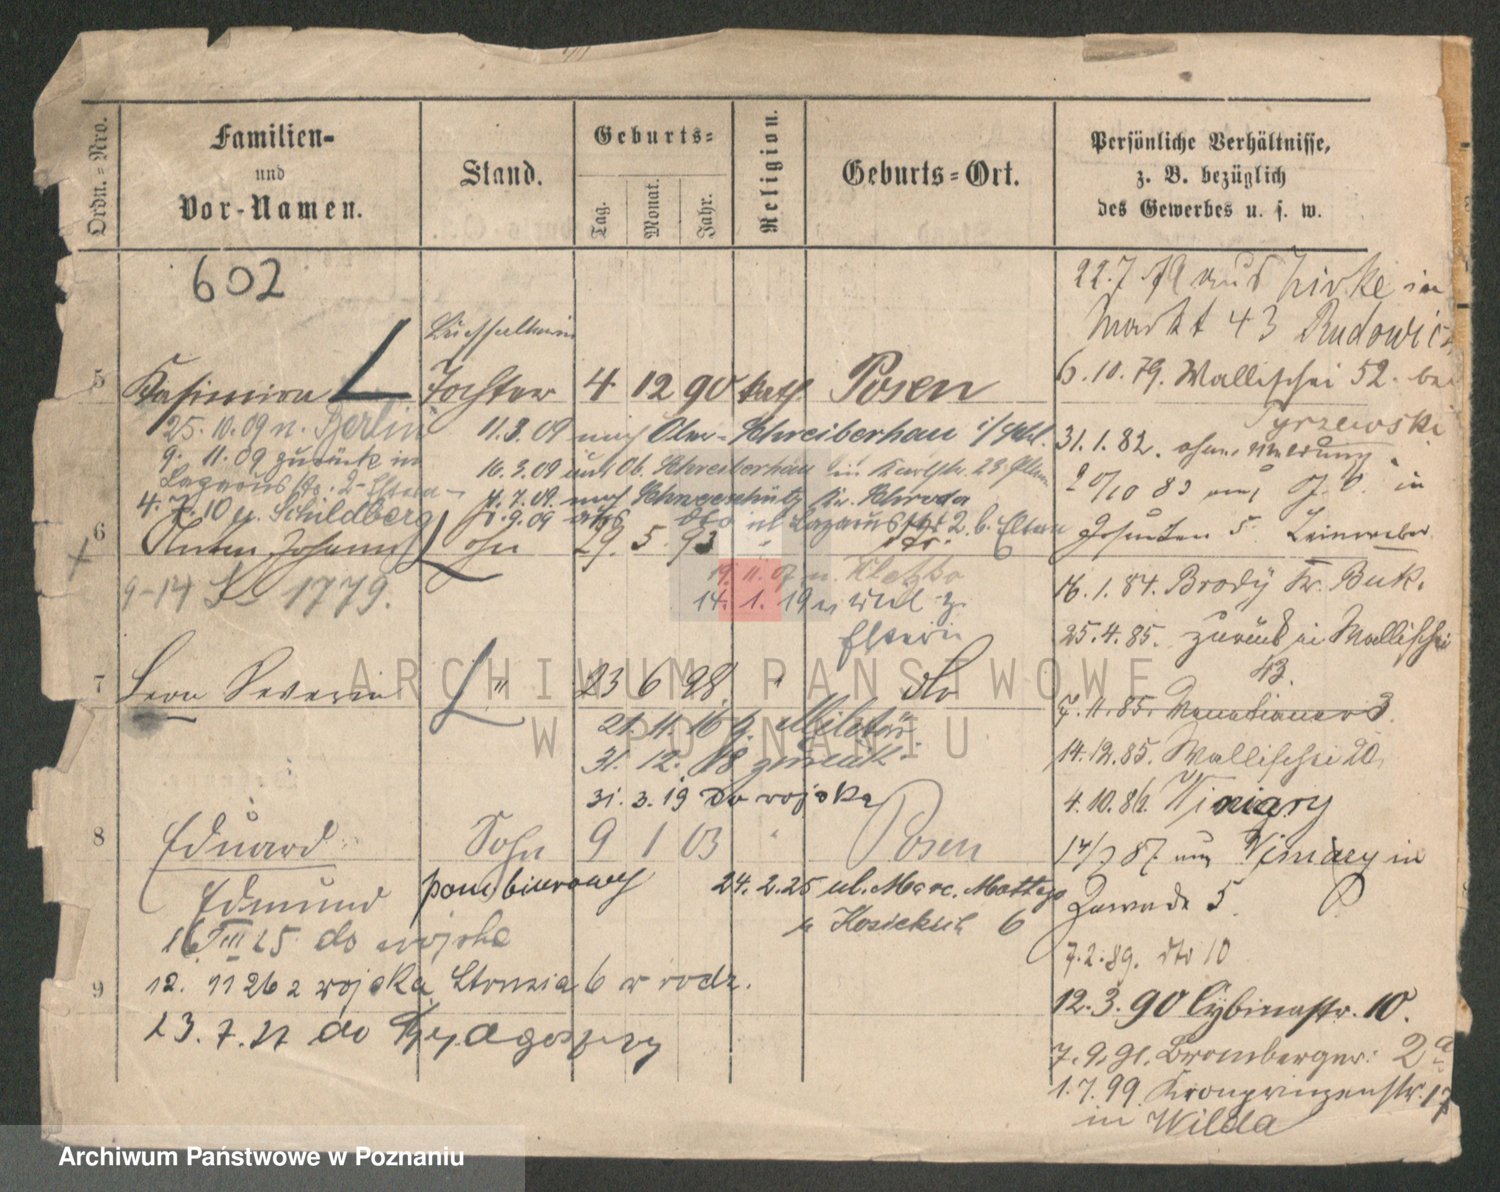 Ordn.-Nro.
Familien-
und
Vor-Namen.
Stand.
Geburts-
Tag.
Monat.
Jahr.
Religion.
Geburts-Ort.
Persönliche Verhältnisse,
z. B. bezüglich
des Gewerbes u. s. w.
602
22.7.79 aus Zirke in
Markt 43 Rudowicz
5 Kasimira Tochter 4 12 90 kath. Posen
6.10.79. Wallischei 52. bei
Tyrzewski
25.10.09 n. Berlin
11.3.09 nach Ober-Schreiberhau
31.1.82. ohne Meldung
9.11.09 zurück in
16.3.09 aus Ob. Schreiberhau in
4.7.09. nach
in
4.7.10 n. Schildberg
1.9.09 aus dto in Lazarusstr 2 b. Eltern
5. Leinweber
6 Anton Johann Sohn 29. 5. 93 " dto.
9-14 1779.
19.11.07 n. Kletzko
14.1.19 z.
Eltern
16.1.84. Brody Kr. Buk.
25.4.85. zurück in Wallischei
43.
7 Leon Severin " 23 6 98 " dto
7.11.85. Venetianer 3.
21.11.16 z. Militär
31.12.18 zurück
14.12.85. Wallischei 20,
31.3.19 Do wojska
4.10.86. Winiary
8 Eduard Sohn 9 1 03 " Posen
87 aus Winiary in
Edmund pom. biurowy 24.2.25 ul. Marc. Mottego
Zawade 5.
u Kosickich 6
16 III 25 do wojska
7.2.89. dto 10
9 12. 11 26 z wojska Strusia 6 w rodz.
12.3.90 Cybinastr. 10.
23.7.27 do Bydgoszczy
7.9.91. Bromberger: 2a
1.7.99 Kronprinzenstr. 17
in Wilda
ARCHIWUM PAŃSTWOWE
W POZNANIU
Archiwum Państwowe w Poznaniu